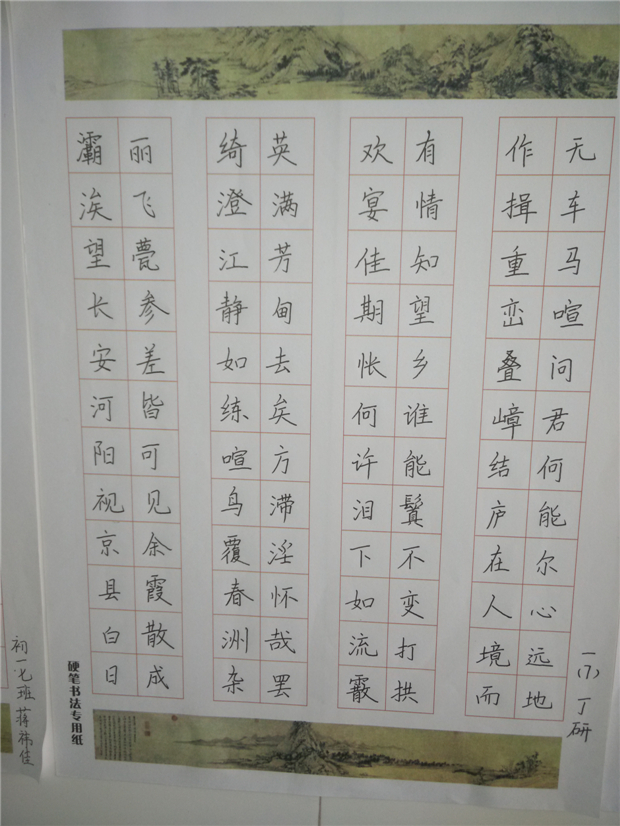 灞涘望长安河阳视京县白日
丽飞甍参差皆可见余霞散成
绮澄江静如练喧鸟覆春洲杂
英满芳甸去矣方滞淫怀哉罢
欢宴佳期怅何许泪下如流霰
有情知望乡谁能鬒不变打拱
作揖重峦叠嶂结庐在人境而
无车马喧问君何能尔心远地
一(7) 丁研
硬笔书法专用纸
初一七班 蒋祎佳